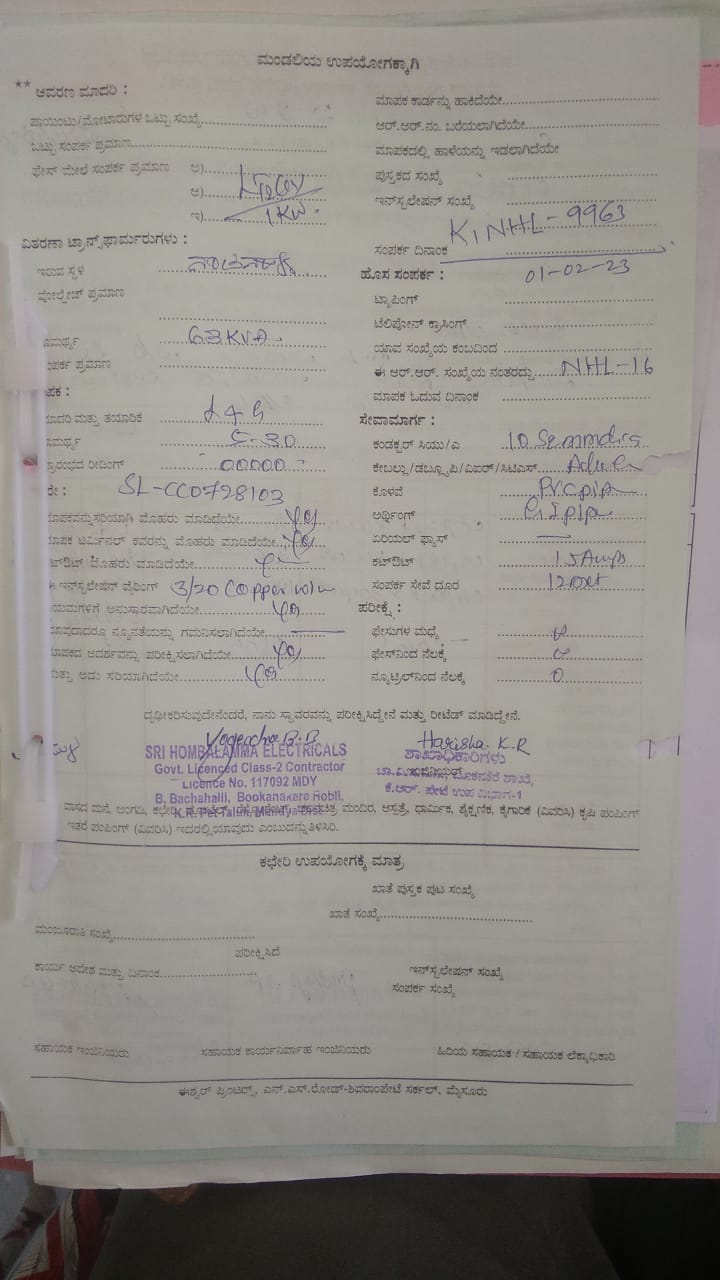 ಮಂಡಲಿಯ ಉಪಯೋಗಕ್ಕಾಗಿ
** ಆವರಣ ಮಾದರಿ :
ಪಾಯಿಂಟು/ಮೋಟಾರುಗಳ ಒಟ್ಟು ಸಂಖ್ಯೆ
ಒಟ್ಟು ಸಂಪರ್ಕ ಪ್ರಮಾಣ
ಫೇಸ್ ಮೇಲೆ ಸಂಪರ್ಕ ಪ್ರಮಾಣ ಅ)
ಆ)
ಇ) 1KW.
ವಿತರಣಾ ಟ್ರಾನ್ಸ್‌ಫಾರ್ಮರುಗಳು :
ಇರುವ ಸ್ಥಳ
ವೋಲ್ಟೇಜ್ ಪ್ರಮಾಣ
ಾಮರ್ಥ್ಯ 63KVA.
ಂಪರ್ಕ ಪ್ರಮಾಣ
ಪಕ :
ಮಾದರಿ ಮತ್ತು ತಯಾರಿಕೆ L&G
ಾಮರ್ಥ್ಯ 5-30
್ರಾರಂಭದ ರೀಡಿಂಗ್ 00000
SL-CC0728103
ಮಾಪಕವನ್ನು ಸರಿಯಾಗಿ ಮೊಹರು ಮಾಡಿದೆಯೇ Yes
ಮಾಪಕ ಟರ್ಮಿನಲ್ ಕವರನ್ನು ಮೊಹರು ಮಾಡಿದೆಯೇ Yes
ಕಟ್‌ಔಟ್ ಮೊಹರು ಮಾಡಿದೆಯೇ
ಈ ಇನ್‌ಸ್ಟಲೇಷನ್ ವೈರಿಂಗ್ 3/20 Copper
ಯಮಗಳಿಗೆ ಅನುಸಾರವಾಗಿದೆಯೇ Yes
ಯಾವುದಾದರೂ ನ್ಯೂನತೆಯನ್ನು ಗಮನಿಸಲಾಗಿದೆಯೇ
ಮಾಪಕದ ಆದರ್ಶವನ್ನು ಪರೀಕ್ಷಿಸಲಾಗಿದೆಯೇ Yes
ಮತ್ತು ಅದು ಸರಿಯಾಗಿದೆಯೇ Yes
ಮಾಪಕ ಕಾರ್ಡನ್ನು ಹಾಕಿದೆಯೇ
ಆರ್.ಆರ್.ನಂ. ಬರೆಯಲಾಗಿದೆಯೇ
ಮಾಪಕದಲ್ಲಿ ಹಾಳೆಯನ್ನು ಇಡಲಾಗಿದೆಯೇ
ಪುಸ್ತಕದ ಸಂಖ್ಯೆ
ಇನ್‌ಸ್ಟಲೇಷನ್ ಸಂಖ್ಯೆ
K1NHL-9963
ಸಂಪರ್ಕ ದಿನಾಂಕ
ಹೊಸ ಸಂಪರ್ಕ : 01-02-23
ಟ್ಯಾಪಿಂಗ್
ಟೆಲಿಫೋನ್ ಕ್ರಾಸಿಂಗ್
ಯಾವ ಸಂಖ್ಯೆಯ ಕಂಬದಿಂದ
ಈ ಆರ್.ಆರ್. ಸಂಖ್ಯೆಯ ನಂತರದ್ದು NHL-16
ಮಾಪಕ ಓದುವ ದಿನಾಂಕ
ಸೇವಾಮಾರ್ಗ :
ಕಂಡಕ್ಟರ್ ಸಿಯು/ಎ
ಕೇಬಲ್ಲು/ಡಬ್ಲ್ಯೂಪಿ/ವಿಐಆರ್/ಸಿಟಿಎಸ್
ಕೊಳವೆ PVC pipe
ಅರ್ಥಿಂಗ್ G.I pipe
ಏರಿಯಲ್ ಫ್ಯೂಸ್
ಕಟ್‌ಔಟ್ 15 Amps
ಸಂಪರ್ಕ ಸೇವೆ ದೂರ
ಪರೀಕ್ಷೆ :
ಫೇಸುಗಳ ಮಧ್ಯೆ
ಫೇಸ್‌ನಿಂದ ನೆಲಕ್ಕೆ
ನ್ಯೂಟ್ರಿಲ್‌ನಿಂದ ನೆಲಕ್ಕೆ 0
ದೃಢೀಕರಿಸುವುದೇನೆಂದರೆ, ನಾನು ಸ್ಥಾವರವನ್ನು ಪರೀಕ್ಷಿಸಿದ್ದೇನೆ ಮತ್ತು ರೀಟೆಡ್ ಮಾಡಿದ್ದೇನೆ.
Yogendra B.B
SRI HOMBALAMMA ELECTRICALS
Govt. Licenced Class-2 Contractor
Licence No. 117092 MDY
B. Bachahalli, Bookanakere Hobli,
K.R. Pet Taluk, Mandya Dist.
Harisha. K.R
ಶಾಖಾಧಿಕಾರಿಗಳು
ಬೂಕನಕೆರೆ ಶಾಖೆ,
ಕೆ.ಆರ್. ಪೇಟೆ ಉಪ ವಿಭಾಗ-1
ವಾಸದ ಮನೆ, ಅಂಗಡಿ, ಕಛೇರಿ, ಮಂದಿರ, ಆಸ್ಪತ್ರೆ, ಧಾರ್ಮಿಕ, ಶೈಕ್ಷಣಿಕ, ಕೈಗಾರಿಕೆ (ವಿವರಿಸಿ) ಕೃಷಿ ಪಂಪಿಂಗ್
ಇತರೆ ಪಂಪಿಂಗ್ (ವಿವರಿಸಿ) ಇದರಲ್ಲಿ ಯಾವುದು ಎಂಬುದನ್ನು ತಿಳಿಸಿರಿ.
ಕಛೇರಿ ಉಪಯೋಗಕ್ಕೆ ಮಾತ್ರ
ಖಾತೆ ಪುಸ್ತಕ ಪುಟ ಸಂಖ್ಯೆ
ಖಾತೆ ಸಂಖ್ಯೆ
ಮಂಜೂರಾತಿ ಸಂಖ್ಯೆ
ಪರೀಕ್ಷಿಸಿದೆ
ಕಾರ್ಯ ಆದೇಶ ಮತ್ತು ದಿನಾಂಕ
ಇನ್‌ಸ್ಟಲೇಷನ್ ಸಂಖ್ಯೆ
ಸಂಪರ್ಕ ಸಂಖ್ಯೆ
ಸಹಾಯಕ ಇಂಜಿನಿಯರು ಸಹಾಯಕ ಕಾರ್ಯನಿರ್ವಾಹ ಇಂಜಿನಿಯರು ಹಿರಿಯ ಸಹಾಯಕ / ಸಹಾಯಕ ಲೆಕ್ಕಾಧಿಕಾರಿ
ಈಶ್ವರ್ ಪ್ರಿಂಟರ್ಸ್, ಎನ್.ಎಸ್.ರೋಡ್-ಶಿವರಾಂಪೇಟೆ ಸರ್ಕಲ್, ಮೈಸೂರು